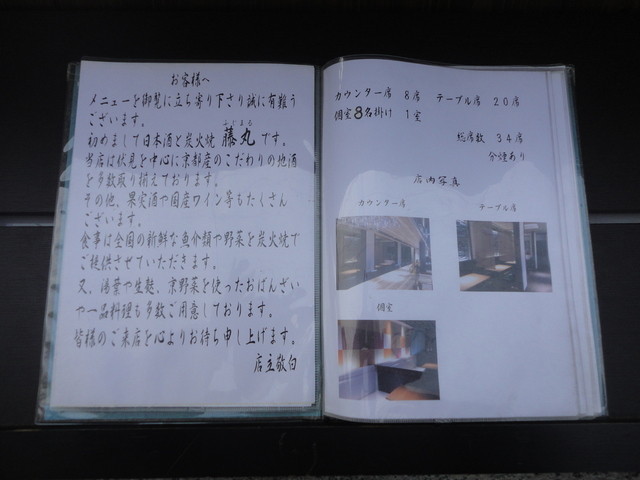 お客様へ
メニューを御覧に立ち寄り下さり誠に有難う
ございます。
ふじまる
初めまして日本酒と炭火焼 藤丸 です。
当店は伏見を中心に京都産のこだわりの地酒
を多数取り揃えております。
その他、果実酒や国産ワイン等もたくさん
ございます。
食事は全国の新鮮な魚介類や野菜を炭火焼で
ご提供させていただきます。
又、湯葉や生麩、京野菜を使ったおばんざい
や一品料理も多数ご用意しております。
皆様のご来店を心よりお待ち申し上げます。
店主敬白
カウンター席 8席 テーブル席 20席
個室8名掛け 1室
総席数 34席
分煙あり
店内写真
カウンター席 テーブル席
個室